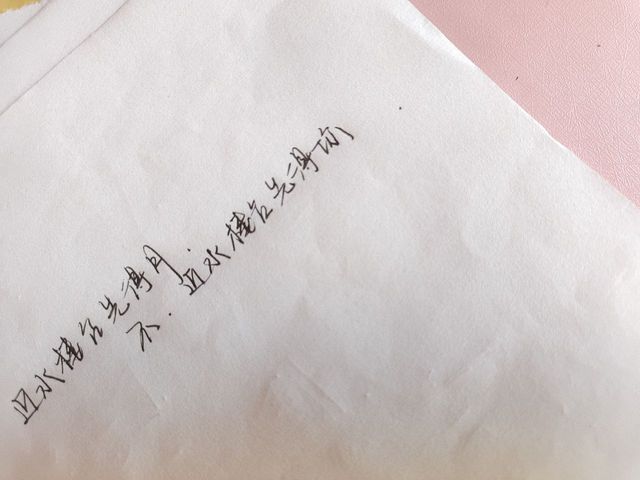 近水楼台先得月.
不.近水楼台先得你